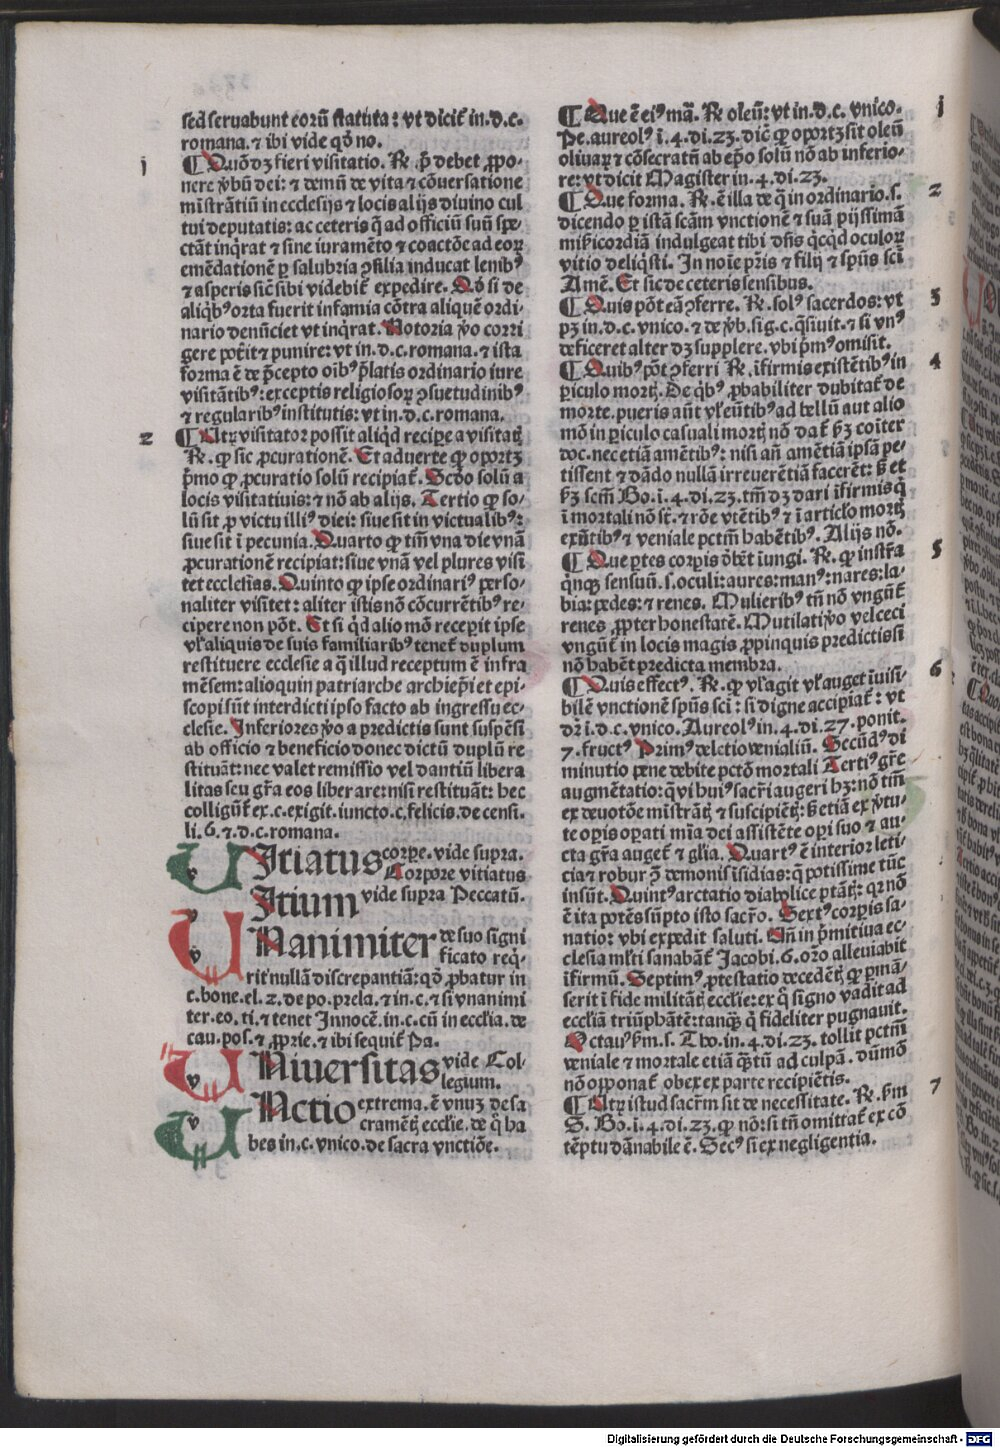 sed seruabunt eorū statuta: vt dicit̄ in.d.c.
romana. ⁊ ibi vide qđ no.
j
¶ Quō dꝫ fieri visitatio. ℞. p̄ debet ꝓpo-
nere ꝟbū dei: ⁊ demū de vita ⁊ cōuersatione
mīstrātiū in ecclesijs ⁊ locis alijs diuino cul
tui deputatis: ac ceteris q̄ ad officiū suū spe-
ctāt inq̇rat ⁊ sine iuramēto ⁊ coactōe ad eoꝝ
emēdationē ꝑ salubria ꝯsilia inducat lenibꝰ
⁊ asperis sic̄ sibi videbit̄ expedire. Qđ si de
aliq̇bꝰ orta fuerit infamia cōtra aliquē ordi-
nario denūciet vt inq̇rat. Notoria ꝟo corri
gere poterit ⁊ punire: vt in.d.c.romana. ⁊ ista
forma ē de p̄cepto oibꝰ p̄latis ordinario iure
visitātibꝰ: exceptis religiosoꝝ ꝯsuetudinibꝰ
⁊ regularibꝰ institutis: vt in.d.c.romana.
2
¶ Utꝝ visitator possit aliqd recipe a visitatꝭ
℞. ꝙ sic ꝓcurationē. Et aduerte ꝙ oportꝫ
p̄mo ꝙ ꝓcuratio solū recipiat̄. Scđo solū a
locis visitatiuis: ⁊ nō ab alijs. Tertio ꝙ so-
lū sit ꝓ victu illiꝰ diei: siue sit in victualibꝰ:
siue sit ī pecunia. Quarto ꝙ tm̄ vna die vnā
ꝓcurationē recipiat: siue vnā vel plures visi
tet ecclesias. Quinto ꝙ ipse ordinariꝰ perso-
naliter visitet: aliter istis nō cōcurrētibꝰ re-
cipere non pōt. Et si qd alio mō receperit ipse
vl̄ aliquis de suis familiaribꝰ tenet̄ duplum
restituere ecclesie a q̄ illud receptum ē infra
mēsem: alioquin patriarche archiepi et epi-
scopi sūt interdicti ipso facto ab ingressu ec-
clesie. Inferiores ꝟo a predictis sunt suspēsi
ab officio ⁊ beneficio donec dictū duplū re
stituāt: nec valet remissio vel dantiū libera
litas seu grā eos liberare: nisi restituāt: hec
colligūt̄ ex.c.exigit. iuncto.c.felicis.de censi.
li.6. ⁊.d.c.romana.
VItiatus corpe. vide supra.
Corpore vitiatus
VItium vide supra Peccatū.
VNanimiter de suo signi
ficato req̇-
rit nullā discrepantiā: qđ ꝓbatur in
c.bone.el.2.de po.prela. ⁊ in.c. ⁊ si vnanimi
ter.eo.ti. ⁊ tenet Innocē.in.c.cū in ecclīa. de
cau.pos. ⁊ ꝓprie. ⁊ ibi sequit̄ Pa.
VNiuersitas vide Col
legium.
VNctio extrema. ē vnuꝫ de sa
cramētꝭ ecclīe. de q̄ ha
bes in.c.vnico.de sacra vnctiōe.
j
¶ Que ē eiꝰ mā. ℞ oleū: vt in.d.c. vnico.
Pe.aureolꝰ i.4.di.23. dic̄ ꝙ oportꝫ sit oleū
oliuaꝝ ⁊ cōsecratū ab epo solū nō ab inferio-
re: vt dicit Magister in.4.di.23.
2
¶ Que forma. ℞. ē illa de q̄ in ordinario.s.
dicendo ꝑ istā scām vnctionē ⁊ suā pijssimā
mīkicordiā indulgeat tibi dn̄s qcqd oculoꝝ
vitio deliq̇sti. In noīe p̄ris ⁊ filij ⁊ spūs scī
Amē. Et sic de ceteris sensibus.
3
¶ Quis pōt eā ꝯferre. ℞. solꝰ sacerdos: vt
pꝫ in.d.c.vnico. ⁊ de ꝟb.sig.c.q̄siuit. ⁊ si vnꝰ
deficeret alter dꝫ supplere. vbi p̄mꝰ omisit.
4
¶ Quibꝰ pōt ꝯferri ℞. īfirmis existētibꝰ in
ꝑiculo mortꝭ. De q̇bꝰ ꝓbabiliter dubitat̄ de
morte. pueris aūt vl̄ eūtibꝰ ad bellū aut alio
mō in ꝑiculo casuali mortꝭ nō dat̄ ẜm coīter
doc.nec etiā amētibꝰ: nisi añ amētiā ipsā pe-
tissent ⁊ dādo nullā irreuerētiā facerēt: ẜ et
ẜm scm̄ Bo.i.4.di.23.tm̄ dꝫ dari īfirmis q̇
ī mortali nō st̄. ⁊ rōe vtētibꝰ ⁊ ī articlo mortꝭ
exn̄tibꝰ ⁊ veniale pctm̄ habētibꝰ. Alijs nō.
5
¶ Que ptes corpis dn̄t īungi. ℞. ꝙ instr̄a
qnqꝫ sensuū.s.oculi: aures: manꝰ: nares: la-
bia: pedes: ⁊ renes. Mulieribꝰ tn̄ nō vngūt̄
renes ꝓpter honestatē. Mutilati ꝟo vel ceci
vngūt̄ in locis magis ꝓpinquis predictis si
nō habēt predicta membra.
6
¶ Quis effectꝰ. ℞. ꝙ vl̄ agit vl̄ auget īuisi-
bilē vnctionē spūs scī: si digne accipiat̄: vt
dr̄ i.d.c.vnico. Aureolꝰ in.4.di.27.ponit.
7.fructꝰ Primꝰ delectio venialiū. Secūdꝰ di
minutio pene debite pctō mortali Tertiꝰ gr̄e
augmētatio: q̄ vi huiꝰ sacr̄i augeri hꝫ: nō tm̄
ex deuotōe mīstrātꝭ ⁊ suscipiētꝭ: ẜ etiā ex ꝟtu-
te opis opati mīa dei assistēte opi suo ⁊ au-
cta grā auget̄ ⁊ glīa. Quartꝰ ē interior leti-
cia ⁊ robur ꝯ demonis īsidias: q̄ potissime tūc
insūt. Quintꝰ arctatio diabolice ptātꝭ: qꝛ nō
ē ita potēs sūpto isto sacr̄o. Sextꝰ corpis sa-
natio: vbi expedit saluti. Uñ in p̄mitiua ec-
clesia ml̄ti sanabāt̄ Jacobi.6.oro alleuiabit
īfirmū. Septimꝰ ꝓtestatio decedētꝭ ꝙ ꝑmā-
serit ī fide militātꝭ ecclīe: ex q̄ signo vadit ad
ecclīā triūphātē: tanqꝫ q̇ fideliter pugnauit.
Octauꝰ ẜm.s. Tho.in.4.di.23. tollit pctm̄
veniale ⁊ mortale etiā q̄ntū ad culpā. dūmō
nō opponat̄ obex ex parte recipiētis.
7
¶ Utꝝ istud sacrm̄ sit de necessitate. ℞. ẜm
S. Bo.i.4.di.23. ꝙ nō: si tn̄ omittat̄ ex cō
tēptu dānabile ē. Secꝰ si ex negligentia.
Digitalisierung gefördert durch die Deutsche Forschungsgemeinschaft - DFG